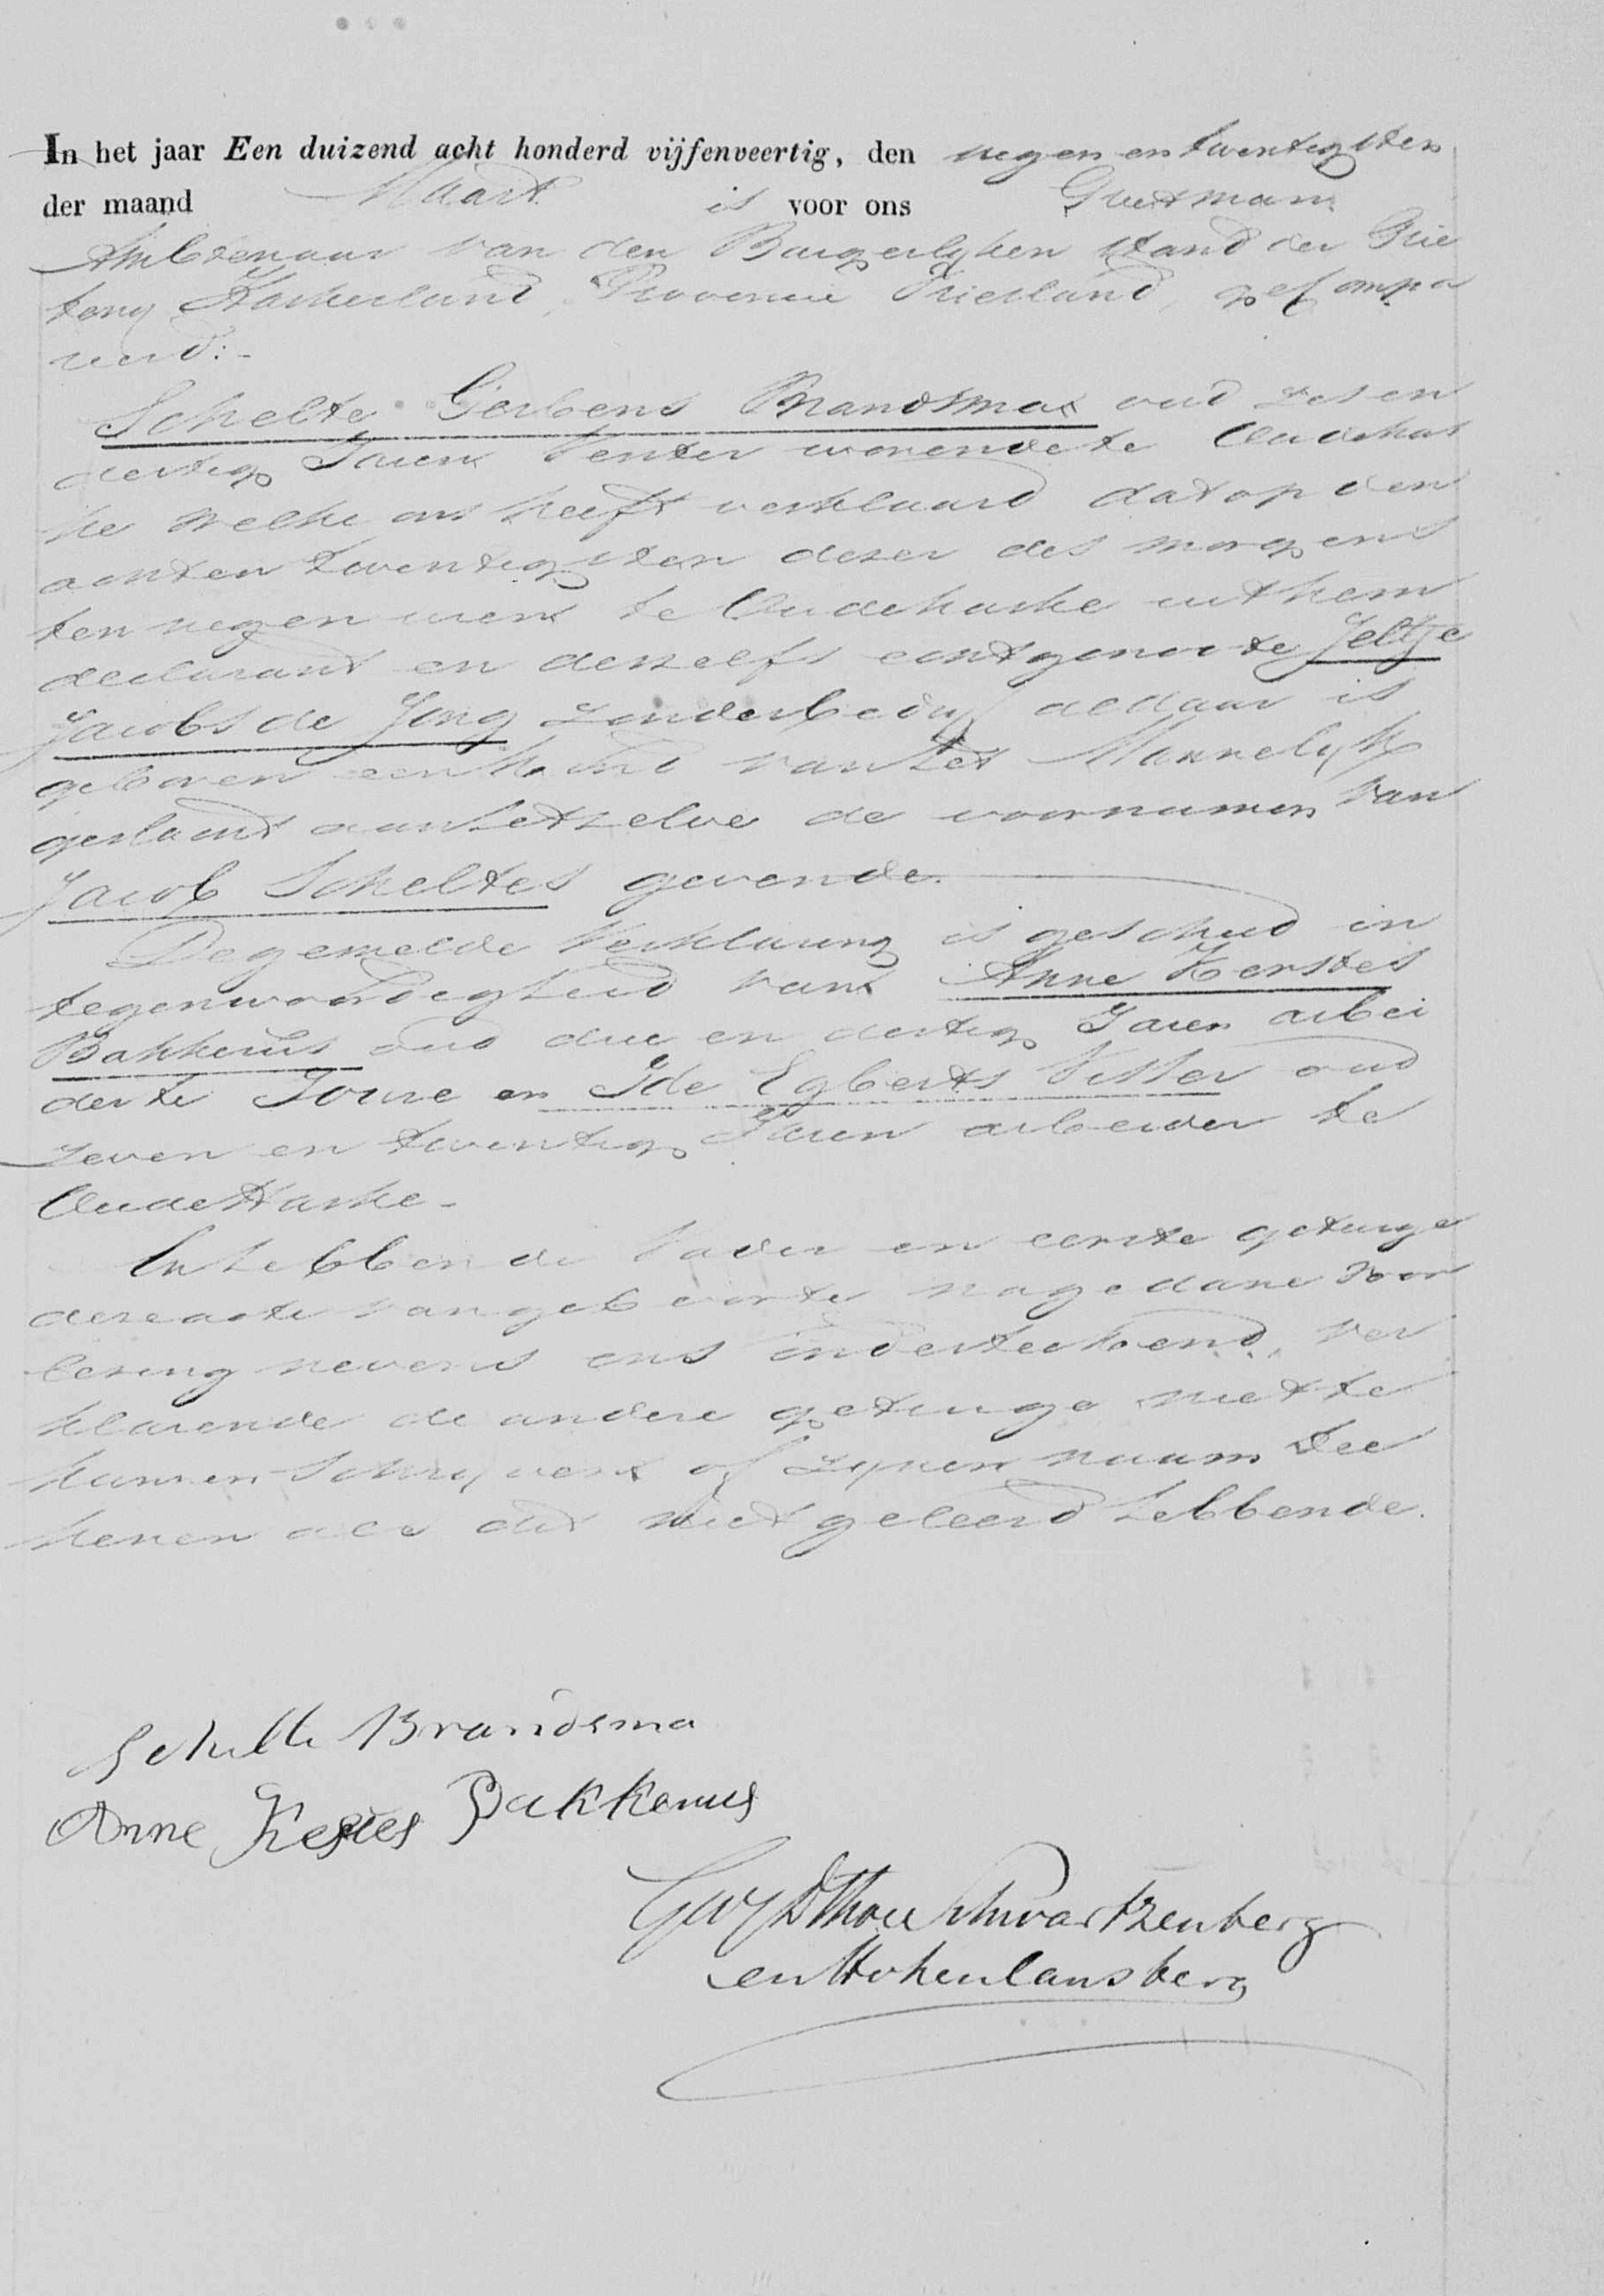 In het jaar Een duizend acht honderd vijfenveertig, den negen en twintigsten
der maand Maart is voor ons Grietman
Ambtenaar van den Burgerlyken Stand der Grie
teny Haskerland, Provincie Friesland, gecompa
reerd:-
Schelte Gerbens Brandsma oud zes en
dertig Jaren Venter wonende te Oudehas
ke welke ons heeft verklaard dat op den
achten twintigsten dezer des morgens
ten negen uren te Oudehaske uit hem
declarant en deszelfs echtgenoote Jeltje
Jacobs de Jong zonder beding aldaar is
geboren een kind van het Mannelyk
geslacht aan hetzelve de voornamen van
Jacob Scheltes gevende.
De gemelde Verklaring is geschied in
tegenwoordigheid van Anne Kerstes
Bakkerus oud drie en dertig Jaren arbei
der te Joure en Ide Egberts Visser oud
zeven en twintig Jaren arbeider te
OudeHaske-
En hebben de Vader en eerste getuige
deze acte van geboorte na gedane voor
lezing nevens ons onderteekend, ver
klarende de andere getuige niet te
kunnen schryven of zynen naam tee
kenen als dit niet geleerd hebbende.
Schelte Brandsma
Anne Kestes Bakkerus
thoe Schwartzenberg
en Hohenlansberg